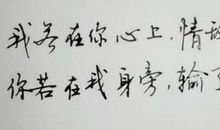 我若在你心上,情
你若在我身旁,输了